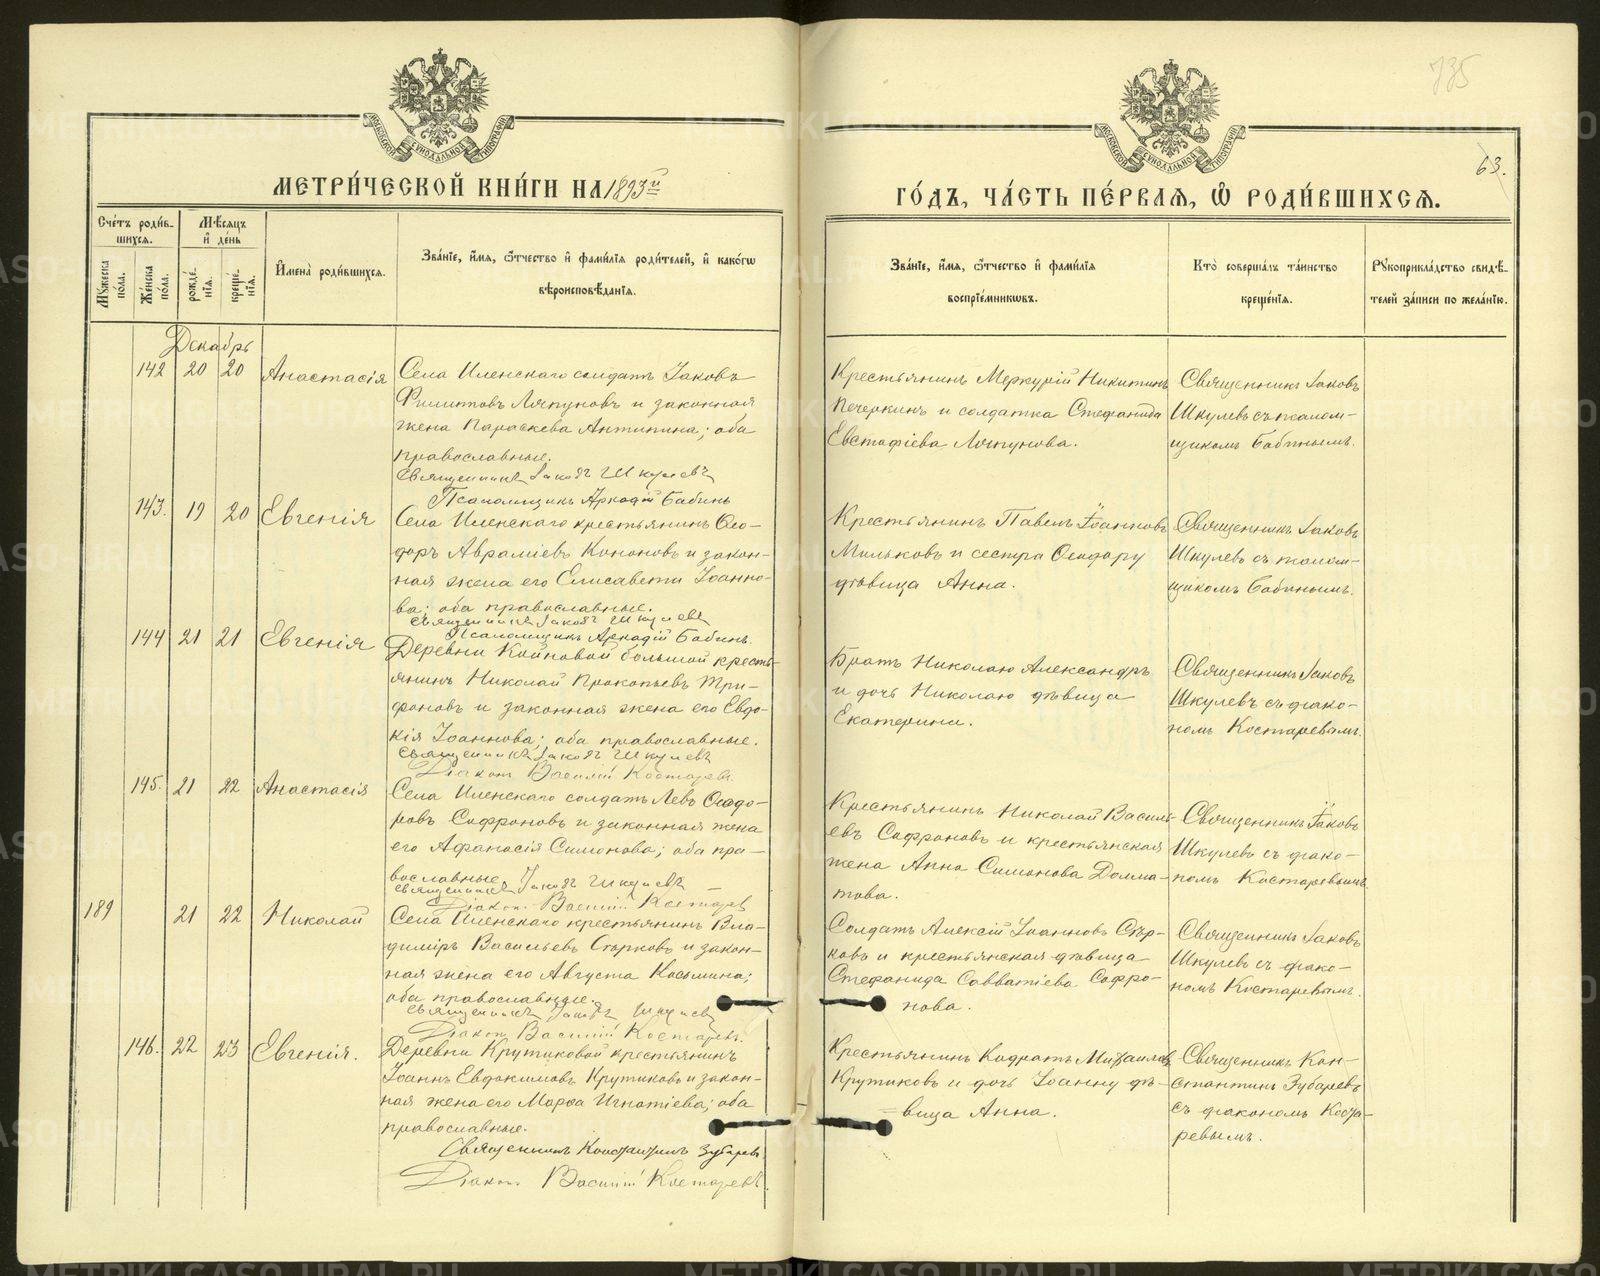 735
63.
МОСКОВСКОЙ СУНОДАЛЬНОЙ ТИПОГРАФІИ
МОСКОВСКОЙ СУНОДАЛЬНОЙ ТИПОГРАФІИ
МЕТРИ́ЧЕСКОЙ КНИ́ГИ НА 1893й
ГО́ДЪ, ЧА́СТЬ ПЕ́РВАѦ, Ѽ РОДИ́ВШИХСѦ.
Сче́тъ роди́в-
шихсѧ.
Мѣ́сѧцъ
и҆ де́нь
Мꙋ́жеска по́ла.
Же́нска по́ла.
рожде́-
нїѧ.
креще́-
нїѧ.
И҆мена̀ роди́вшихсѧ.
Зва́нїе, и҆́мѧ, ѻ҆́тчество и҆ фами́лїѧ роди́телей, и҆ како́гѡ
вѣроисповѣ́данїѧ.
Зва́нїе, и҆́мѧ, ѻ҆́тчество и҆ фами́лїѧ
воспрїе́мникѡвъ.
Кто̀ соверша́лъ та́инство
креще́нїѧ.
Рꙋкоприкла́дство свидѣ́-
телей за́писи по жела́нїю.
Декабрь
142 20 20 Анастасія
Села Иленскаго солдатъ Іаковъ
Филиповъ Ляпуновъ и законная
жена Параскева Антипина; оба
православные.
Священникъ Іаковъ Шкулевъ
Псаломщикъ Аркадій Бабинъ
Крестьянинъ Меркурій Никитинъ
Печеркинъ и солдатка Стефанида
Евстафіева Ляпунова.
Священникъ Іаковъ
Шкулевъ съ псалом-
щикомъ Бабинымъ.
143. 19 20 Евгенія
Села Иленскаго крестьянинъ Ѳео-
доръ Авраміевъ Кононовъ и закон-
ная жена его Елисавета Іоанно-
ва; оба православные.
Священникъ Іаковъ Шкулевъ
Псаломщикъ Аркадій Бабинъ.
Крестьянинъ Павелъ Іоанновъ
Мильковъ и сестра Ѳеодору
дѣвица Анна.
Священникъ Іаковъ
Шкулевъ съ псалом-
щикомъ Бабинымъ.
144 21 21 Евгенія
Деревни Койновой большой кресть-
янинъ Николай Прокопьевъ Три-
фоновъ и законная жена его Евдо-
кія Іоаннова; оба православные.
Священникъ Іаковъ Шкулевъ
Діаконъ Василій Костаревъ
Братъ Николаю Александръ
и дочь Николаю дѣвица
Екатерина.
Священникъ Іаковъ
Шкулевъ съ діако-
номъ Костаревымъ.
145. 21 22 Анастасія
Села Иленскаго солдатъ Левъ Ѳеодо-
ровъ Софроновъ и законная жена
его Афанасія Симонова; оба пра-
вославные.
Священникъ Іаковъ Шкулевъ
Діаконъ Василій Костарев
Крестьянинъ Николай Василь-
евъ Софроновъ и крестьянская
жена Анна Симонова Долма-
това.
Священникъ Іаковъ
Шкулевъ съ діако-
номъ Костаревымъ.
189 21 22 Николай
Села Иленскаго крестьянинъ Вла-
димиръ Васильевъ Стѣрковъ и закон-
ная жена его Августа Косьмина;
оба православные.
Священникъ Іаковъ Шкулевъ
Діаконъ Василій Костаревъ.
Солдатъ Алексій Іоанновъ Стѣр-
ковъ и крестьянская дѣвица
Стефанида Савватіева Софро-
нова.
Священникъ Іаковъ
Шкулевъ съ діако-
номъ Костаревымъ.
146. 22 23 Евгенія.
Деревни Крутиковой крестьянинъ
Іоаннъ Евдокимовъ Крутиковъ и закон-
ная жена его Марѳа Игнатіева; оба
православные.
Священникъ Константинъ Зубаревъ
Діаконъ Василій Костаревъ.
Крестьянинъ Кодратъ Михаиловъ
Крутиковъ и дочь Іоанну дѣ-
вица Анна.
Священникъ Кон-
стантинъ Зубаревъ
съ діакономъ Коста-
ревымъ.